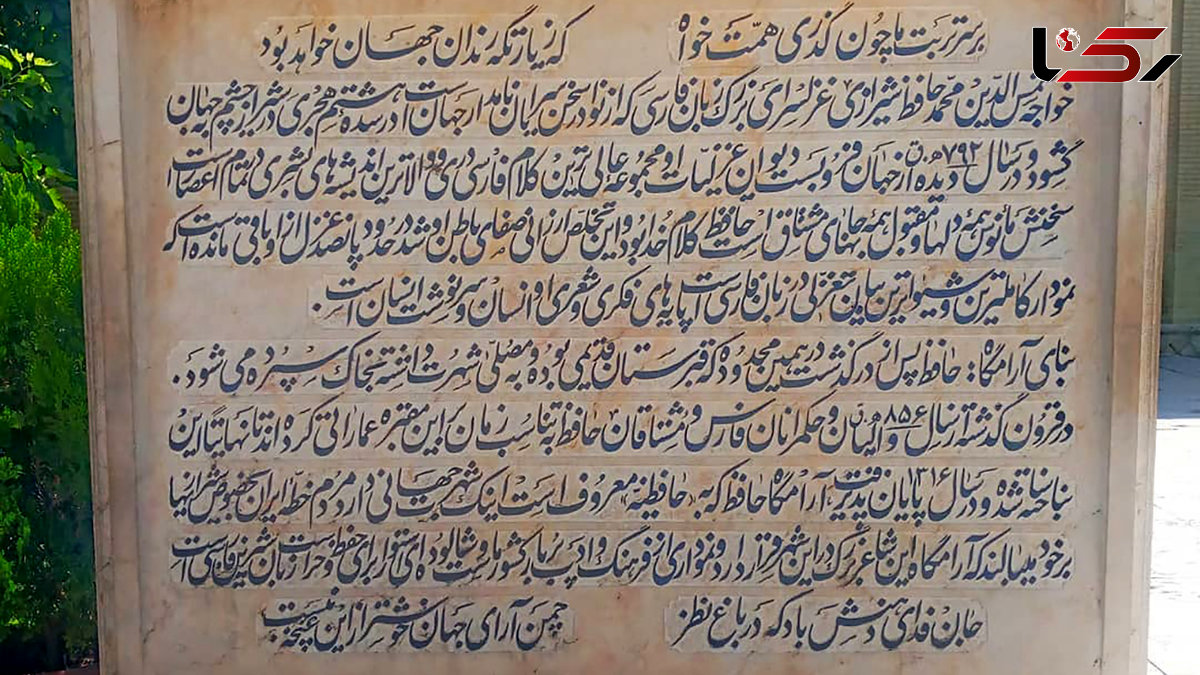 رکنا
بر سر تربت ما چون گذری همت خواه که زیارتگه رندان جهان خواهد بود
خواجه شمس الدین محمد حافظ شیرازی غزلسرای بزرگ زبان فارسی که از نوادر سخن سرایان نامدار جهان است در سده هشتم هجری در شیراز چشم به جهان
گشود و در سال ۷۹۲ ه‍.ق دیده از جهان فرو بست دیوان غزلیات او مجموعه عالی ترین کلام فارسی دری و والاترین اندیشه های بشری در تمام اعصار است
سخنش مأنوس همه دلها و مقبول همه جانهای مشتاق است حافظ کلام خدا بود و این تخلص ارزانی صفای باطن او شد در حدود پانصد غزل از او باقی مانده است که
نمودار کاملترین و شیواترین بیان تغزلی در زبان فارسی است پایه های فکری و شعری او انسان و سرنوشت انسان است.
بنای آرامگاه: حافظ پس از درگذشت در همین محدوده که قبرستان قدیمی بوده و به مصلی شهرت داشته بخاک سپرده می شود.
در قرون گذشته از سال ۸۵۶ ه‍.ق والیان و حکمرانان فارس و مشتاقان حافظ به تناسب زمان بر این مقبره عماراتی کرده اند تا نهایتا این
بنا ساخته شد و در سال ۱۳۱۶ پایان پذیرفت. آرامگاه حافظ که به حافظیه معروف است اینک شهرت جهانی دارد مردم خطه ایران بخصوص شیرازیها
بر خود میبالند که آرامگاه این شاعر بزرگ در این شهر قرار دارد و نموداری از فرهنگ و ادب پربار کشور ماست و شالوده ای استوار برای حفظ و حراست زبان شیرین فارسی است
جان فدای دهنش باد که در باغ نظر چمن آرای جهان خوشتر از این غنچه نبست